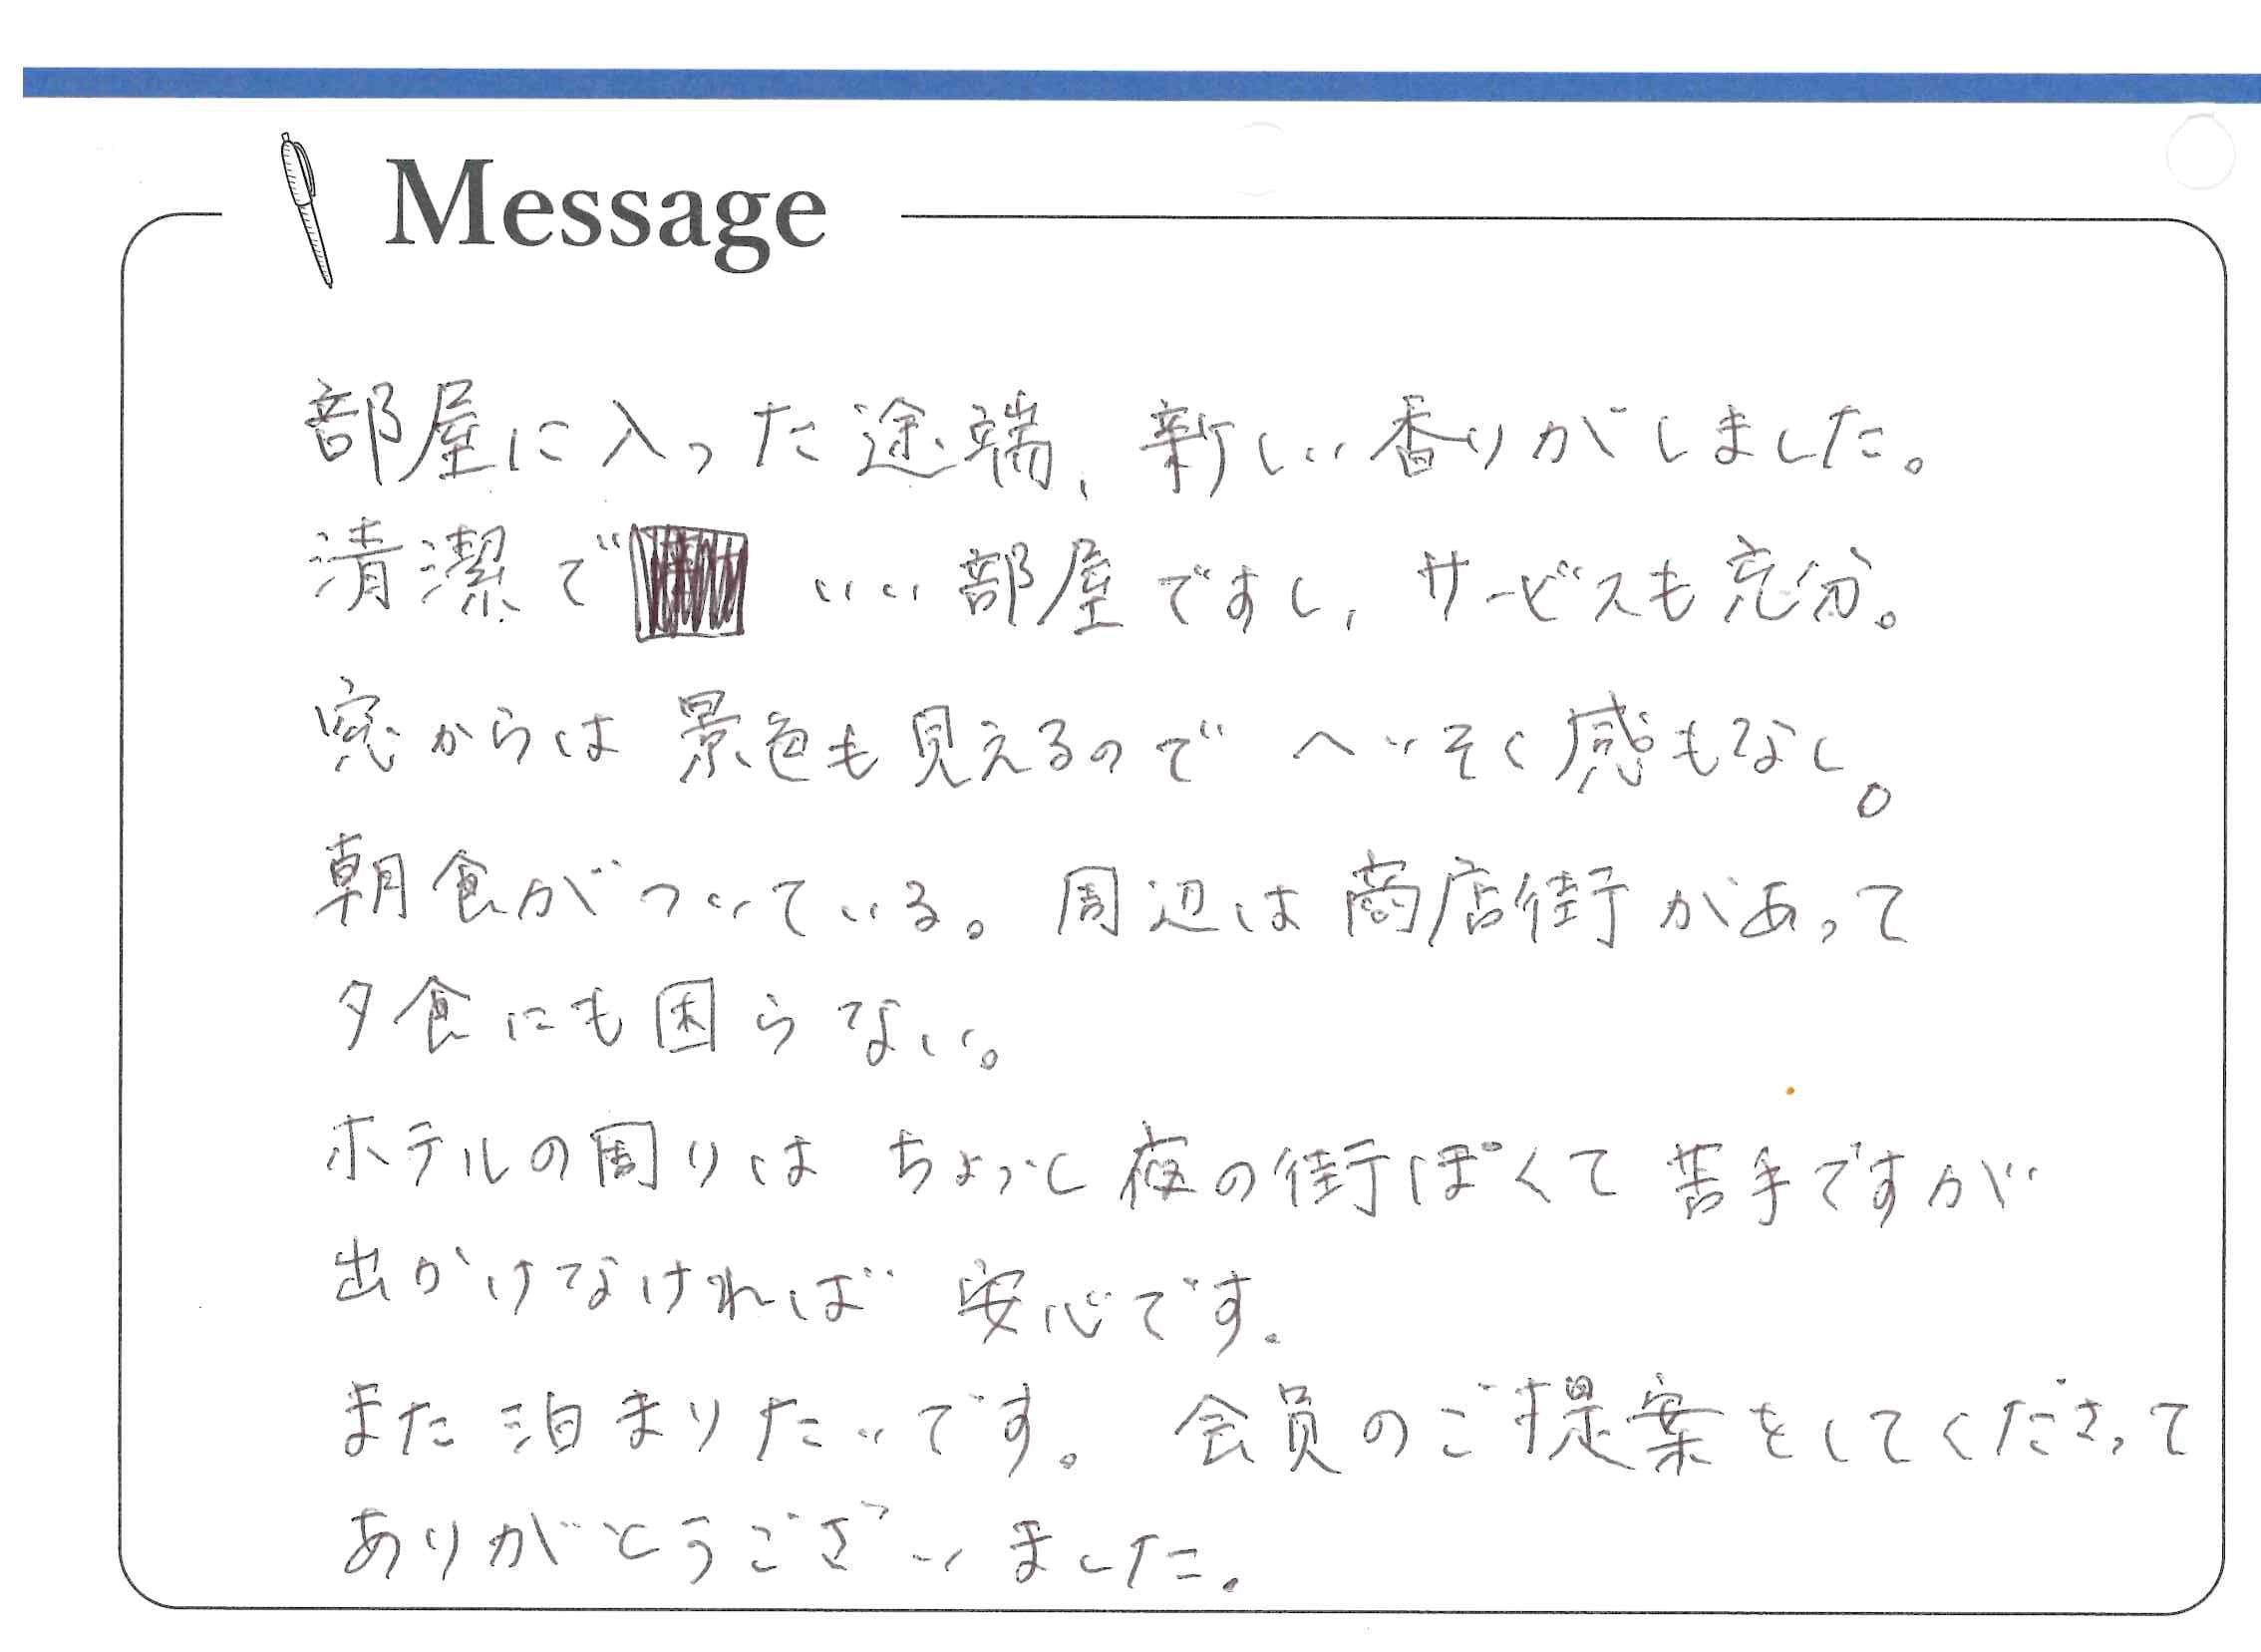 Message
部屋に入った途端、新しい香りがしました。
清潔で いい部屋ですし、サービスも充分。
窓からは景色も見えるので へいそく感もなし。
朝食がついている。周辺は商店街があって
夕食にも困らない。
ホテルの周りは ちょっと夜の街ぽくて 苦手ですが
出かけなければ 安心です。
また泊まりたいです。 会員のご提案をしてくださって
ありがとうございました。